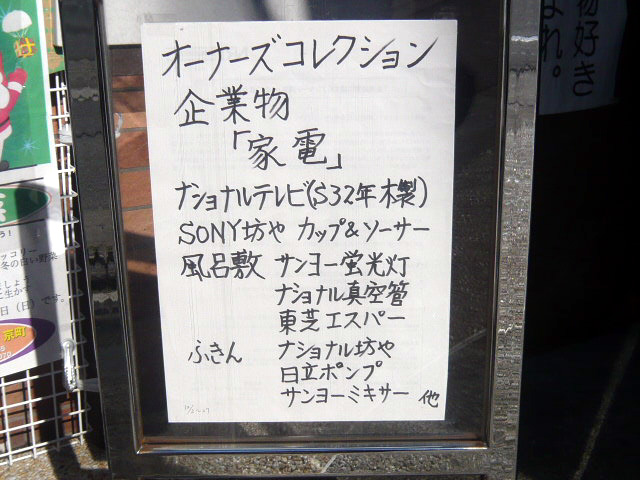 オーナーズコレクション
企業物
「家電」
ナショナルテレビ(S32年木製)
SONY坊や カップ&ソーサー
風呂敷 サンヨー蛍光灯
ナショナル真空管
東芝エスパー
ふきん ナショナル坊や
日立ポンプ
サンヨーミキサー 他
物好き
れ。
う!
ッコリー
冬の白い野菜
日(日)です。
京町